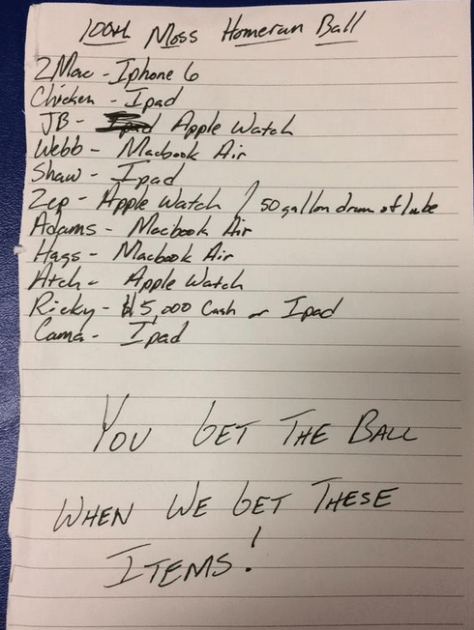 100th Moss Homerun Ball
2Mac - Iphone 6
Chicken - Ipad
JB - Apple Watch
Webb - Macbook Air
Shaw - Ipad
Zep - Apple Watch / 50 gallon drum of lube
Adams - Macbook Air
Hags - Macbook Air
Atch - Apple Watch
Ricky - $5,000 Cash or Ipad
Cama - Ipad
You Get The Ball
When We Get These
Items!